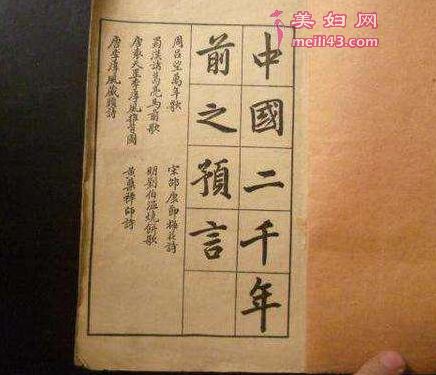 美妇网
meili43.com
中國二千年
前之預言
周呂望萬年歌
蜀漢諸葛亮馬前歌
唐袁天罡李淳風推背圖
唐李淳風藏頭詩
宋邵康節梅花詩
明劉伯溫燒餅歌
黃蘗禪師詩